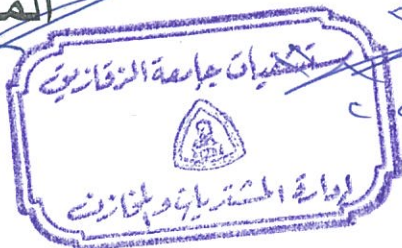 الم
مستشفيات جامعة الزقازيق
إدارة المشتريات والمخازن